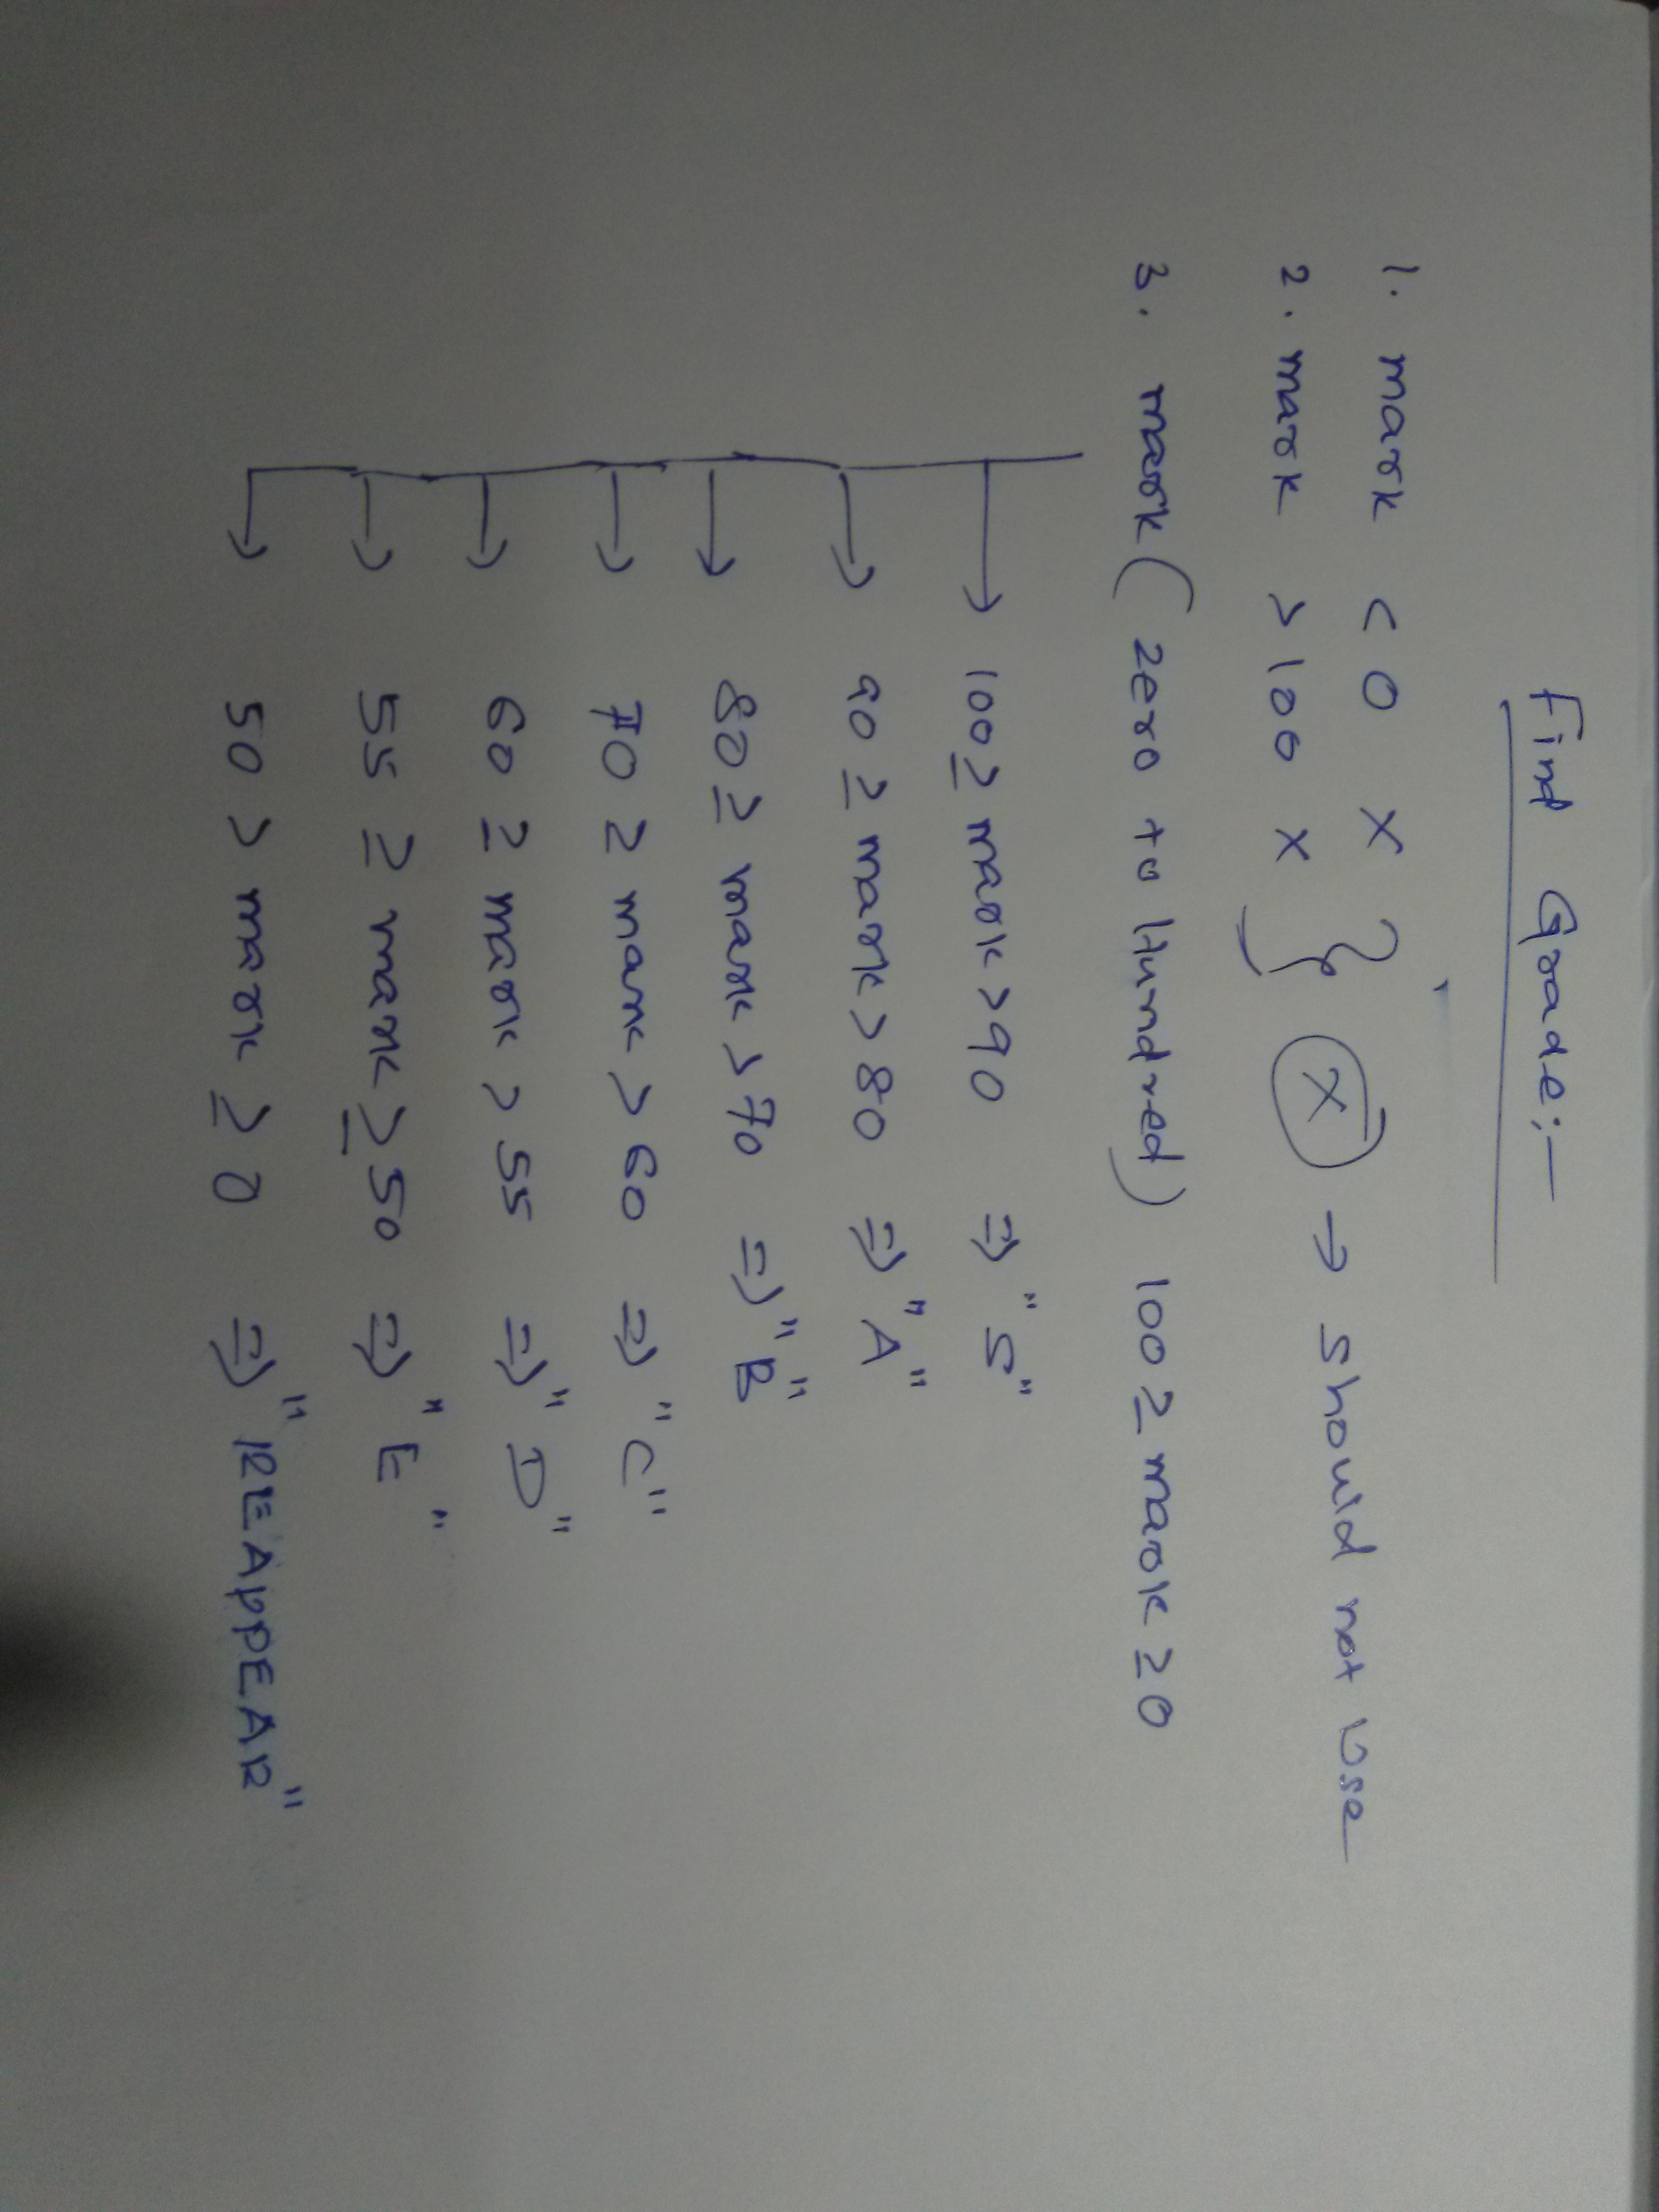 Find Grade:-
1. mark < 0 X
2. mark > 100 X
} X → should not use
3. mark (zero to Hundred) 100 ≥ mark ≥ 0
→ 100 ≥ mark > 90 ⇒ "S"
→ 90 ≥ mark > 80 ⇒ "A"
→ 80 ≥ mark > 70 ⇒ "B"
→ 70 ≥ mark > 60 ⇒ "C"
→ 60 ≥ mark > 55 ⇒ "D"
→ 55 ≥ mark ≥ 50 ⇒ "E"
→ 50 > mark ≥ 0 ⇒ "REAPPEAR"